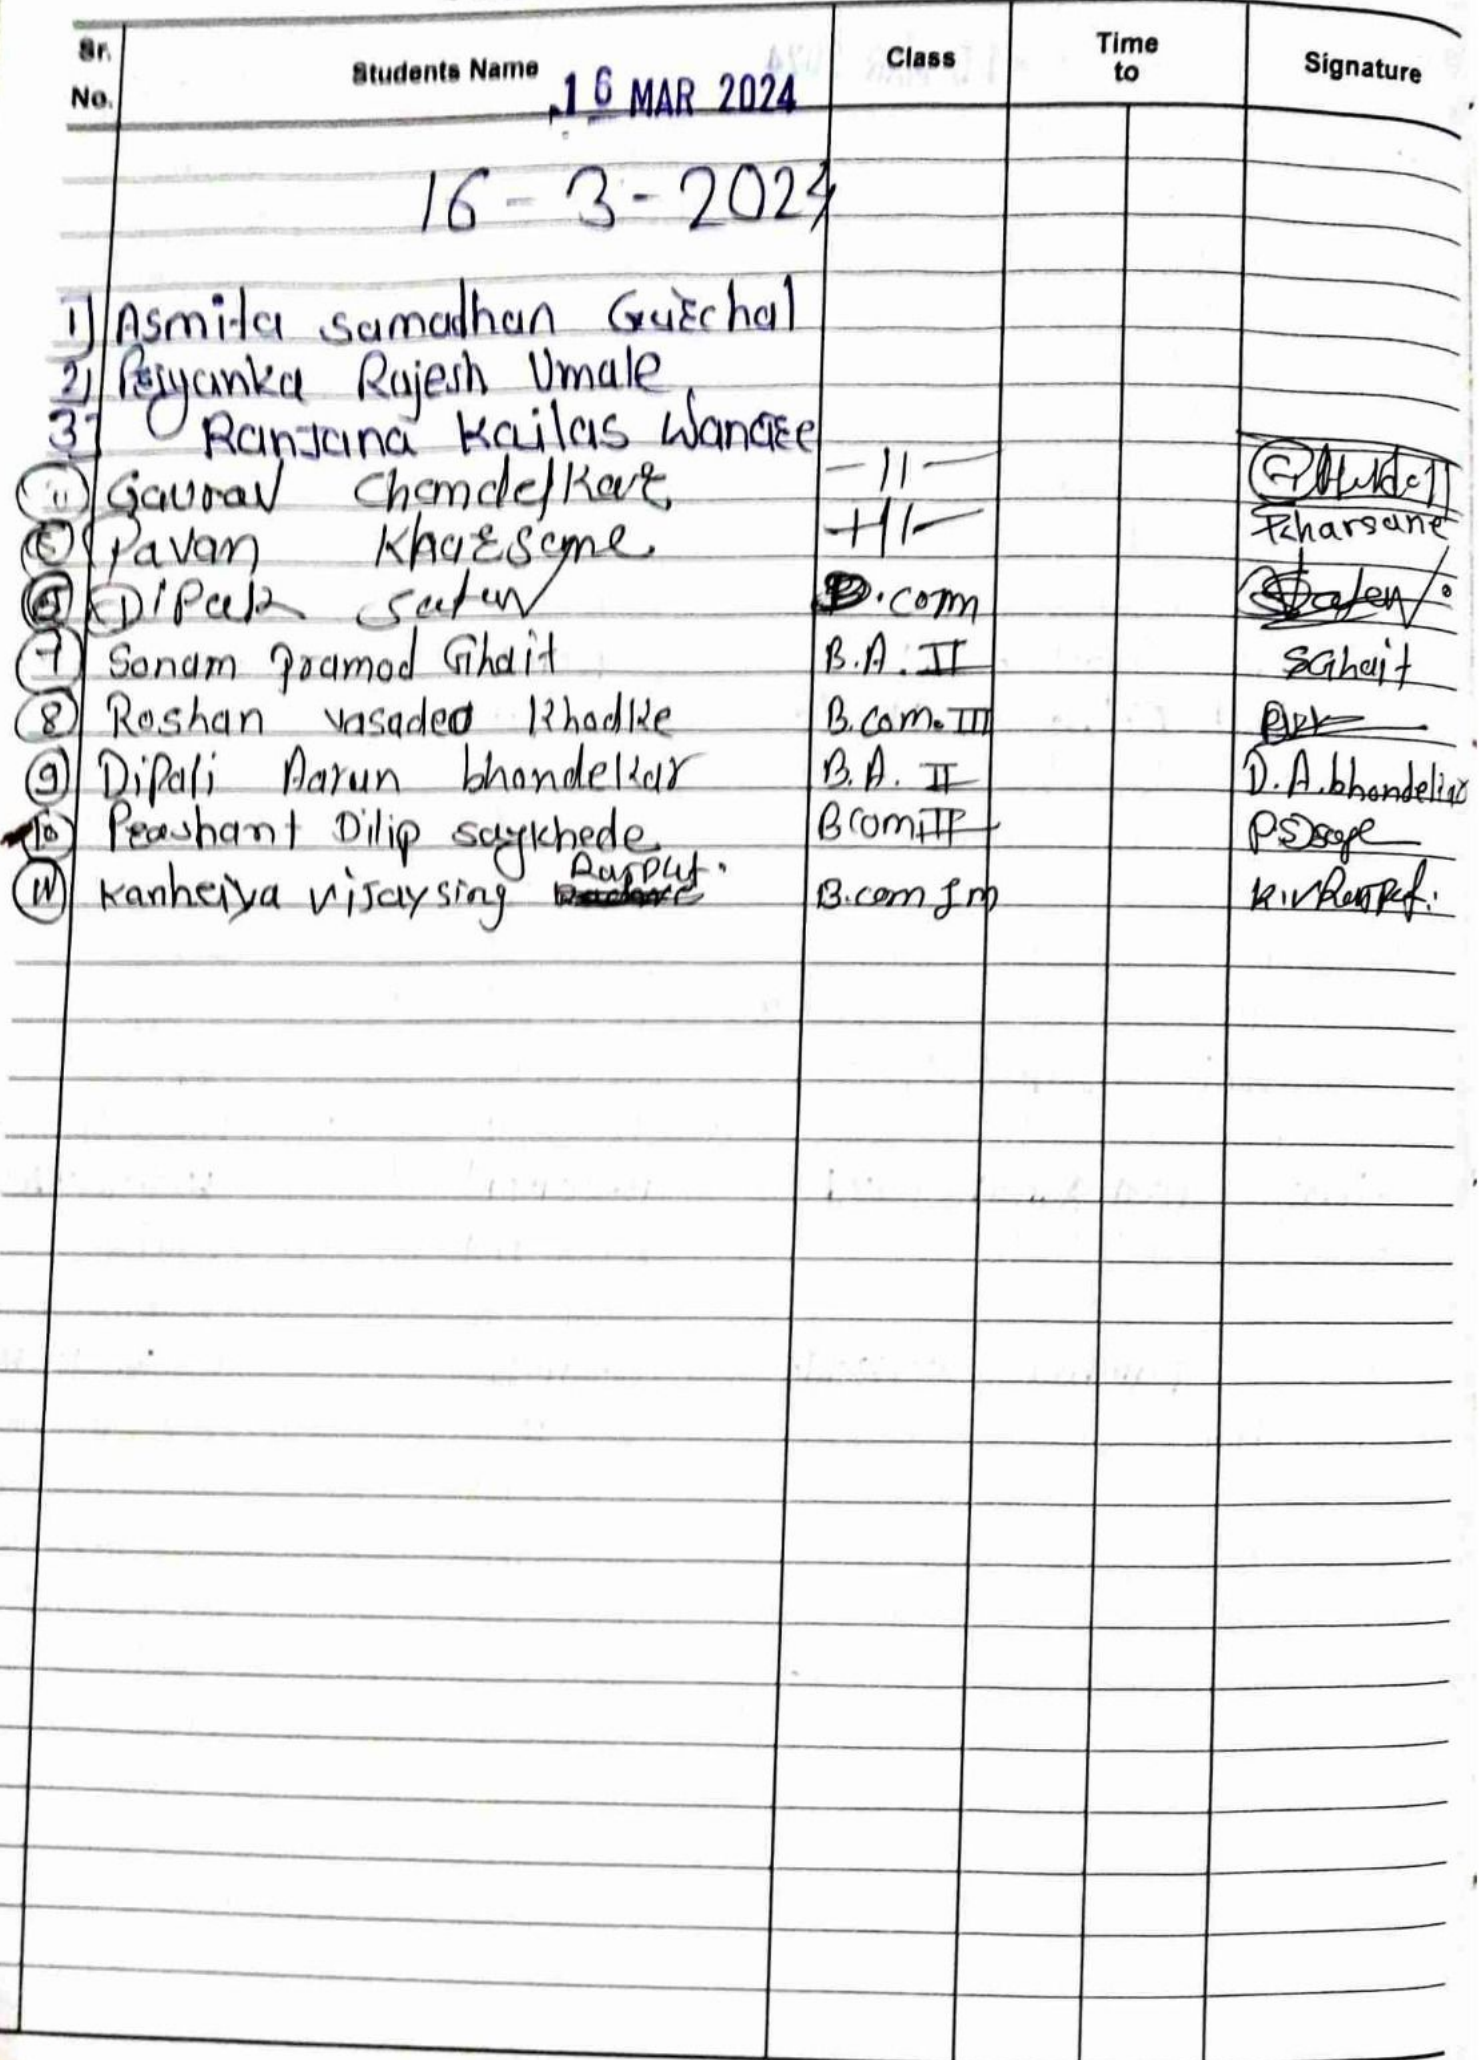 Sr. No. Students Name Class Time to Signature
16 MAR 2024
16-3-2024
1) Asmita Samadhan Gurchal
2) Priyanka Rajesh Umale
3) Ranjana Kailas Wanare
Gaurav Chandelkar -11-
Pavan Kharsane -11- Kharsane
Dipak Satav B.com Satav
7 Sonam pramod Ghait B.A. II SGhait
8 Roshan vasadeo Khadke B.com. III
9 Dipali Aarun bhondekar B.A. II D.A.bhondekar
10 Prashant Dilip saykhede Bcom III
11 Kanheiya vijaysing Rajput. B.com K.V Rajput.